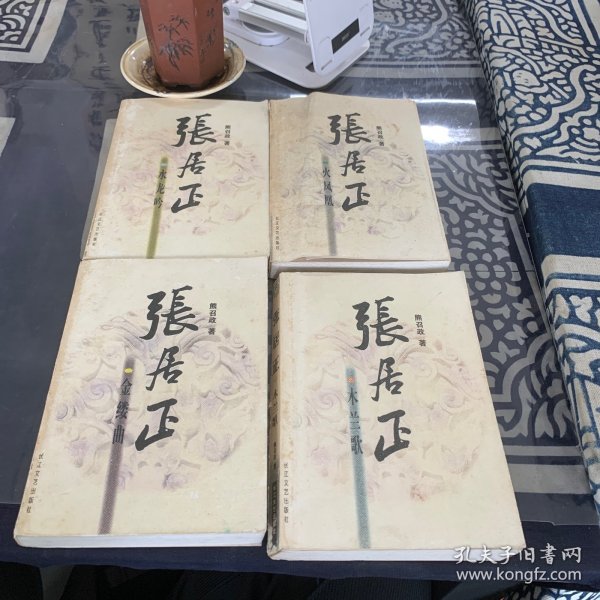 張居正
熊召政 著
水龙吟
长江文艺出版社
張居正
熊召政 著
火凤凰
长江文艺出版社
張居正
熊召政 著
金缕曲
长江文艺出版社
張居正
熊召政 著
木兰歌
长江文艺出版社
孔夫子旧書网
www.kongfz.com